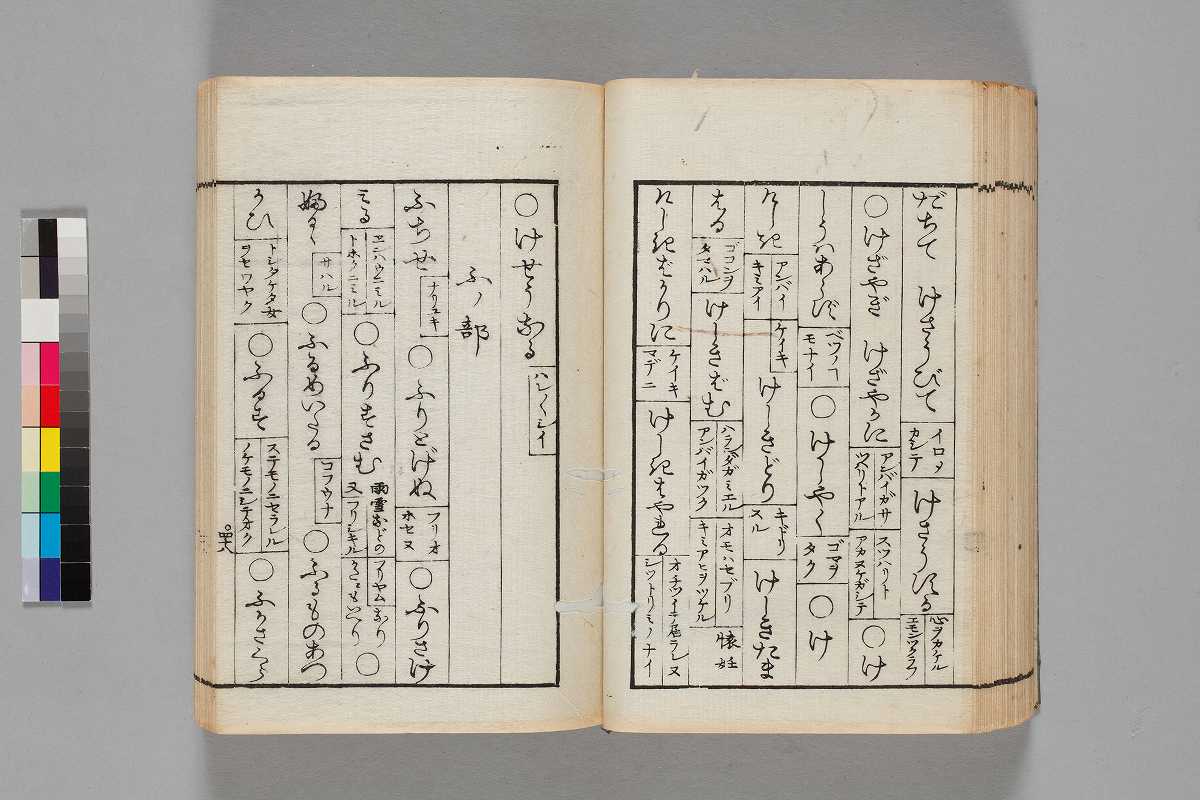 だちて けさうびて イロヲカシテ けさうだる 心ヲカケル エモンツクラフ
〇けざやぎ けざやかに アンバイガサツパリトアル スツハリトアカヌケガシテ 〇け
しうはあらず ベツノコモナイ 〇けしやく ゴマヲタク 〇け
しき アンバイ キミアイ ケイキ けしきどり キドリスル けしきたま
はる ゴコンヲタマハル けしきばむ ハラバタガミエル アンバイガツク オモハセブリ キミアヒヲツケル 懐妊
けしきばかりに ケイキマデニ けしきはやれる オチツイテ居ラレヌ シツトリミノナイ
〇けせうなる ハレ〱シイ
ふノ部
ふぢせ ナリユキ 〇ふりとげぬ フリオホセヌ 〇ふりさけ
みる ヱンハウニミル トホクニミル 〇ふりすさむ 雨雪などのフリヤムなり 又フリシキルをもいへり 〇
ふるゝ サハル 〇ふるめいたる コフウナ 〇ふるものあつ
かひ トシタケタ女ヲセワヤク 〇ふるす ステモノニセラレル ノケモノニシテオク 〇ふかさくら